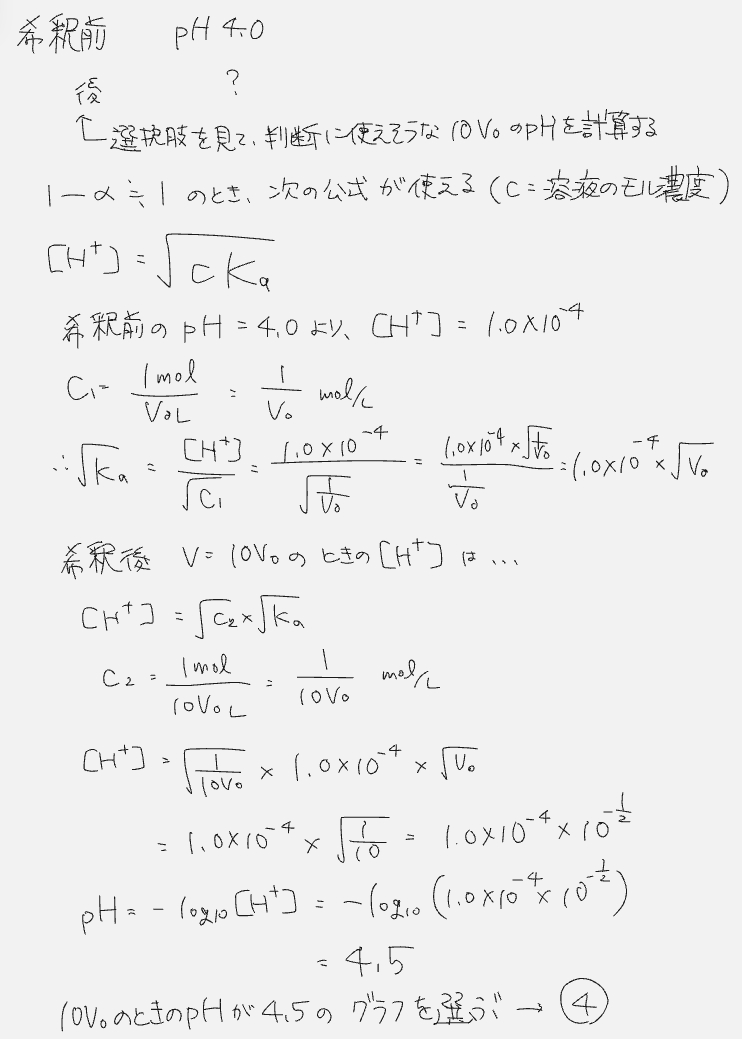 希釈前 pH 4.0
後 ?
↑選択肢を見て、判断に使えそうな 10V₀ のpHを計算する
1-α≒1 のとき、次の公式が使える (C=溶液のモル濃度)
[H⁺] = √(C Ka)
希釈前の pH = 4.0 より、[H⁺] = 1.0×10⁻⁴
C₁ = 1mol/V₀L = 1/V₀ mol/L
∴√Ka = [H⁺]/√C₁ = 1.0×10⁻⁴/√(1/V₀) = (1.0×10⁻⁴×√(1/V₀))/(1/V₀) = 1.0×10⁻⁴×√V₀
希釈後 V=10V₀ のときの [H⁺] は…
[H⁺] = √C₂×√Ka
C₂ = 1mol/10V₀L = 1/10V₀ mol/L
[H⁺] = √(1/10V₀) × 1.0×10⁻⁴ × √V₀
= 1.0×10⁻⁴ × √(1/10) = 1.0×10⁻⁴×10^(-1/2)
pH = -log₁₀[H⁺] = -log₁₀(1.0×10⁻⁴×10^(-1/2))
= 4.5
10V₀のときのpHが4.5の グラフを選ぶ → ④